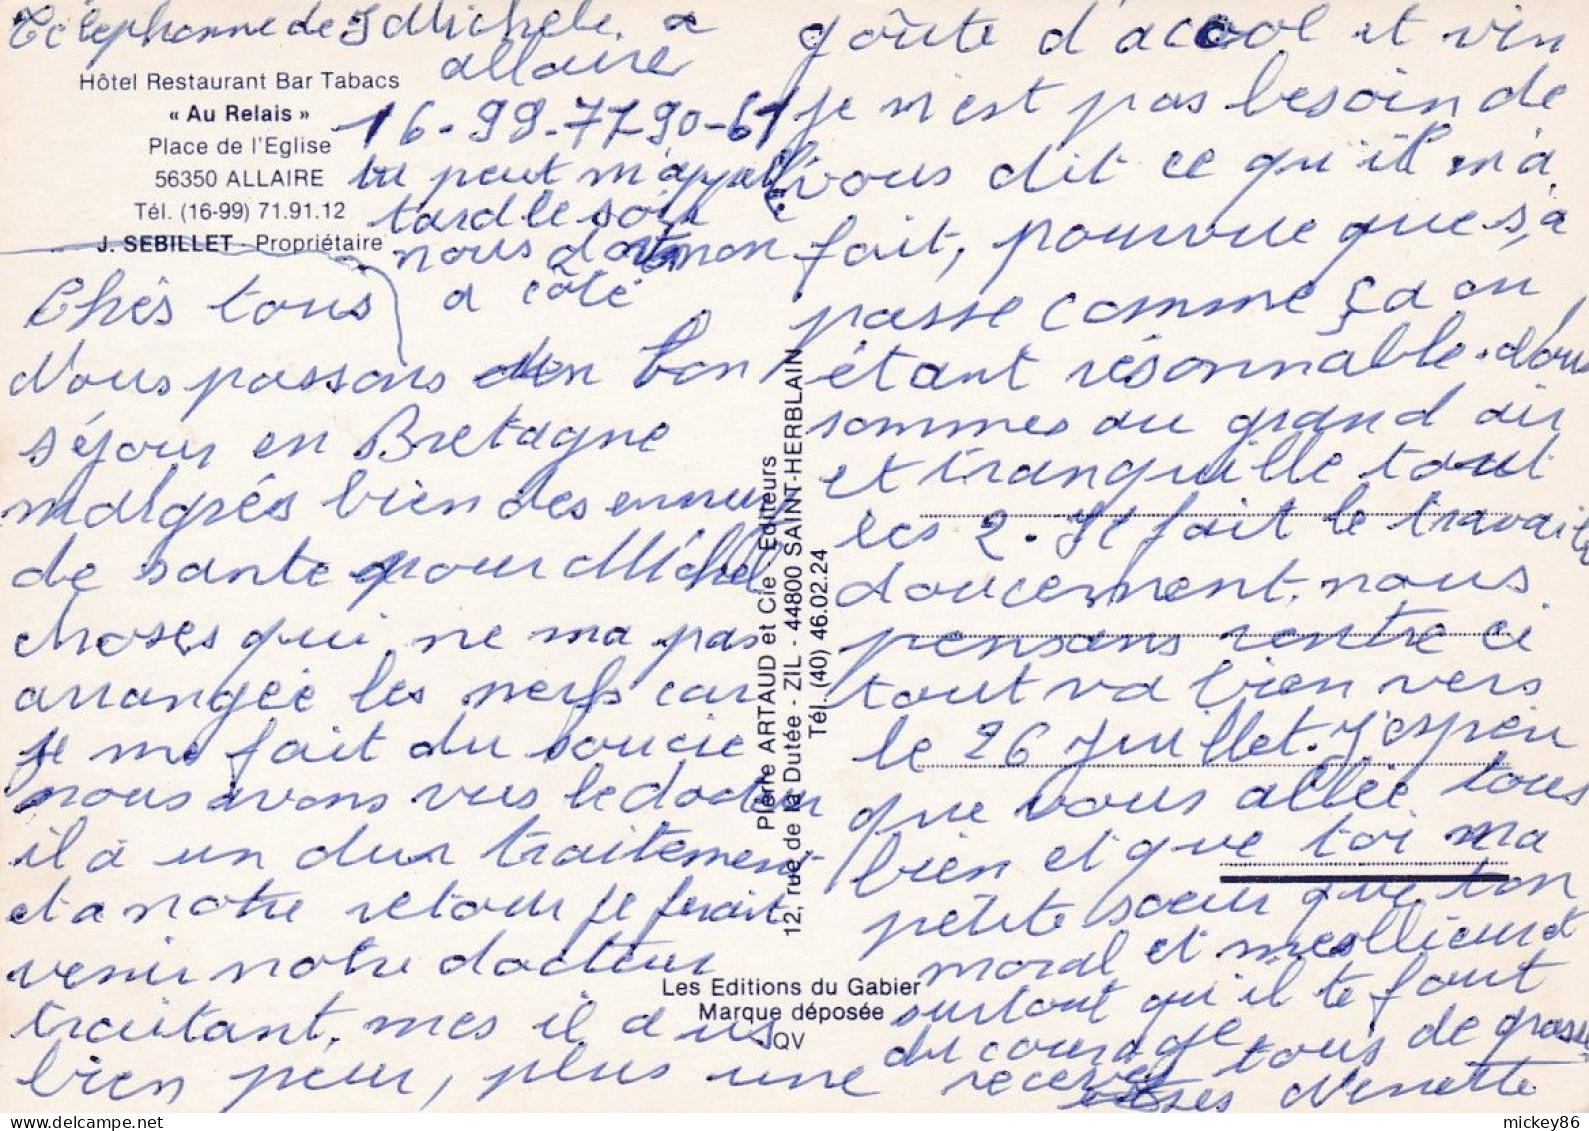 Téléphone de J Michele a
allaire
16-99-7790-61
tu peut m'appell
tard le soir
nous dont mon
a côté
Hôtel Restaurant Bar Tabacs
« Au Relais »
Place de l'Eglise
56350 ALLAIRE
Tél. (16-99) 71.91.12
J. SEBILLET - Propriétaire
Chès tous
Nous passons un bon
séjour en Bretagne
malgrés bien des ennuis
de sante pour Michel
choses qui ne ma pas
arrangée les nerfs car
je me fait du soucie
nous avons vus le docteur
il a un dur traitement
et a notre retour je ferait
venir notre docteur
traitant. mes il a us
bien peur, plus une
goûte d'acool et vin
je n'est pas besoin de
vous dit ce qu'il m'a
fait, pourvue que s,a
passe comme ça on
étant résonnable. Nous
sommes au grand air
et tranquille tout
les 2. Il fait le travail
doucement. nous
pensons rentre ci
tout va bien vers
le 26 Juillet. J'espèr
que vous allée tous
bien et que toi ma
petite soeur que ton
moral et meslieur et
surtout qu'il te faut
du courage
recevez tous de gros
ses Nenette
Pierre ARTAUD et Cie - Editeurs
12, rue de la Dutée - ZIL - 44800 SAINT-HERBLAIN
Tél. (40) 46.02.24
Les Editions du Gabier
Marque déposée
QV
mickey86